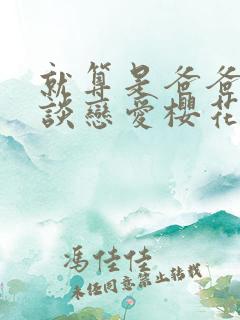 就算是爸爸
談戀愛櫻花
馮佳佳
未经同意禁止转载